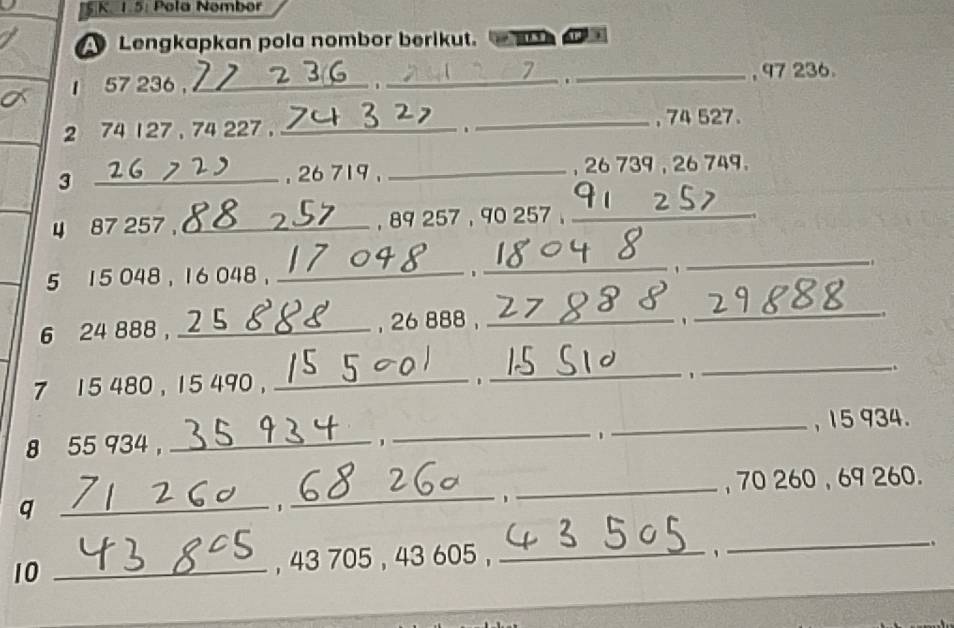 S.K. 1.5: Pola Nombor
A Lengkapkan pola nombor berikut.
1 57 236 , 77 236 , ____ , ____ , 97 236.
2 74 127 , 74 227 , 74 327 , ____ , 74 527.
3 26 729 , 26 719 , ____ , 26 739 , 26 749.
4 87 257 , 88 257 , 89 257 , 90 257 , 91 257
5 15 048 , 16 048 , 17 048 , 18 048 , ____.
6 24 888 , 25 888 , 26 888 , 27 888 , 29 888.
7 15 480 , 15 490 , 15 5001 , 15 510 , ____.
8 55 934 , 35 934 , ____ , ____ , 15 934.
9 71 260 , 68 260 , ____ , 70 260 , 69 260.
10 43 805 , 43 705 , 43 605 , 43 505 , ____.